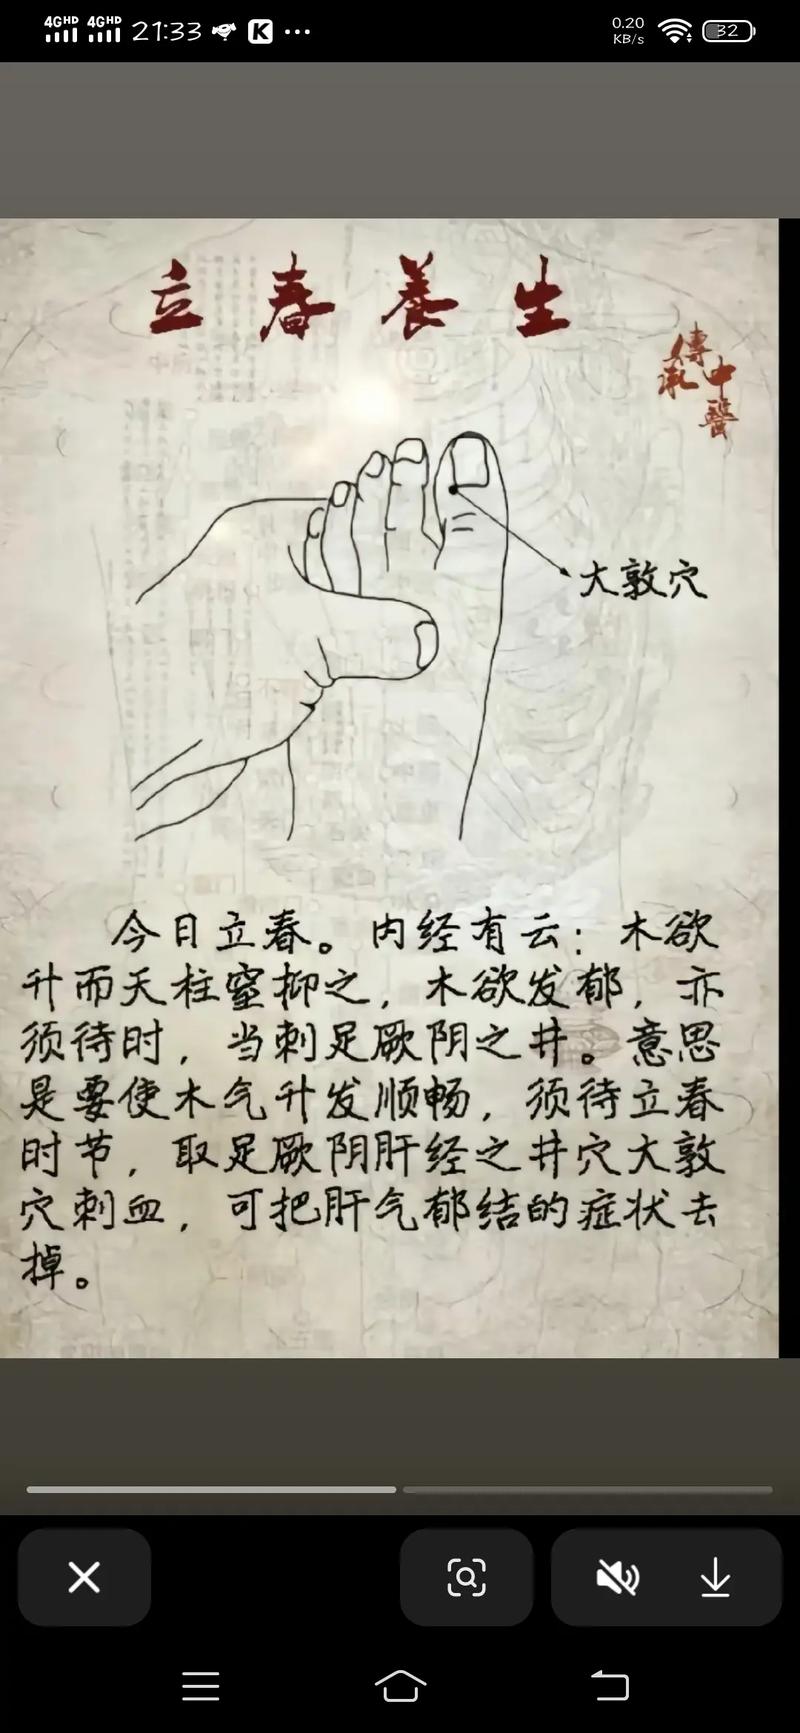 4GHD 4GHD 21:33 K ... 0.20 KB/s 32
立春養生
傳承
中醫
大敦穴
今日立春。内经有云：木欲
升而天柱窒抑之，木欲发郁，亦
须待时，当刺足厥阴之井。意思
是要使木气升发顺畅，须待立春
时节，取足厥阴肝经之井穴大敦
穴刺血，可把肝气郁结的症状去
掉。